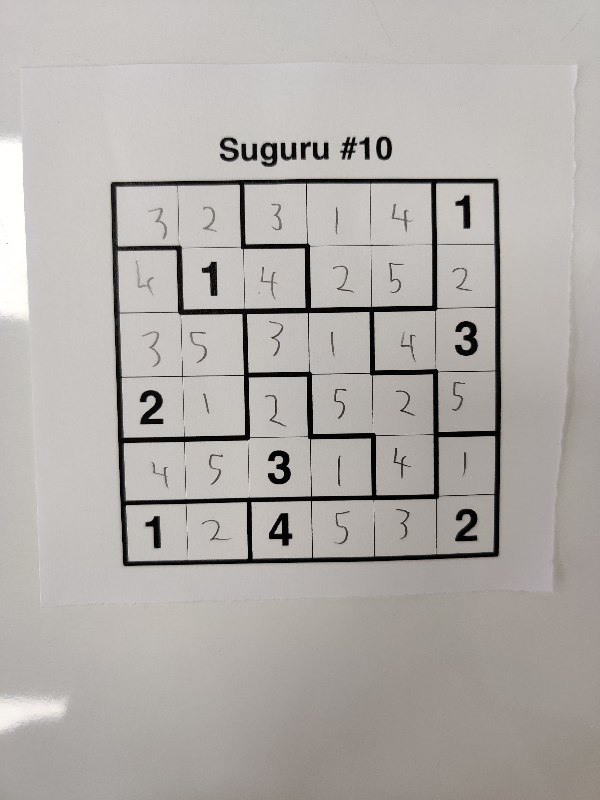 Suguru #10
3 2 3 1 4 1
4 1 4 2 5 2
3 5 3 1 4 3
2 1 2 5 2 5
4 5 3 1 4 1
1 2 4 5 3 2